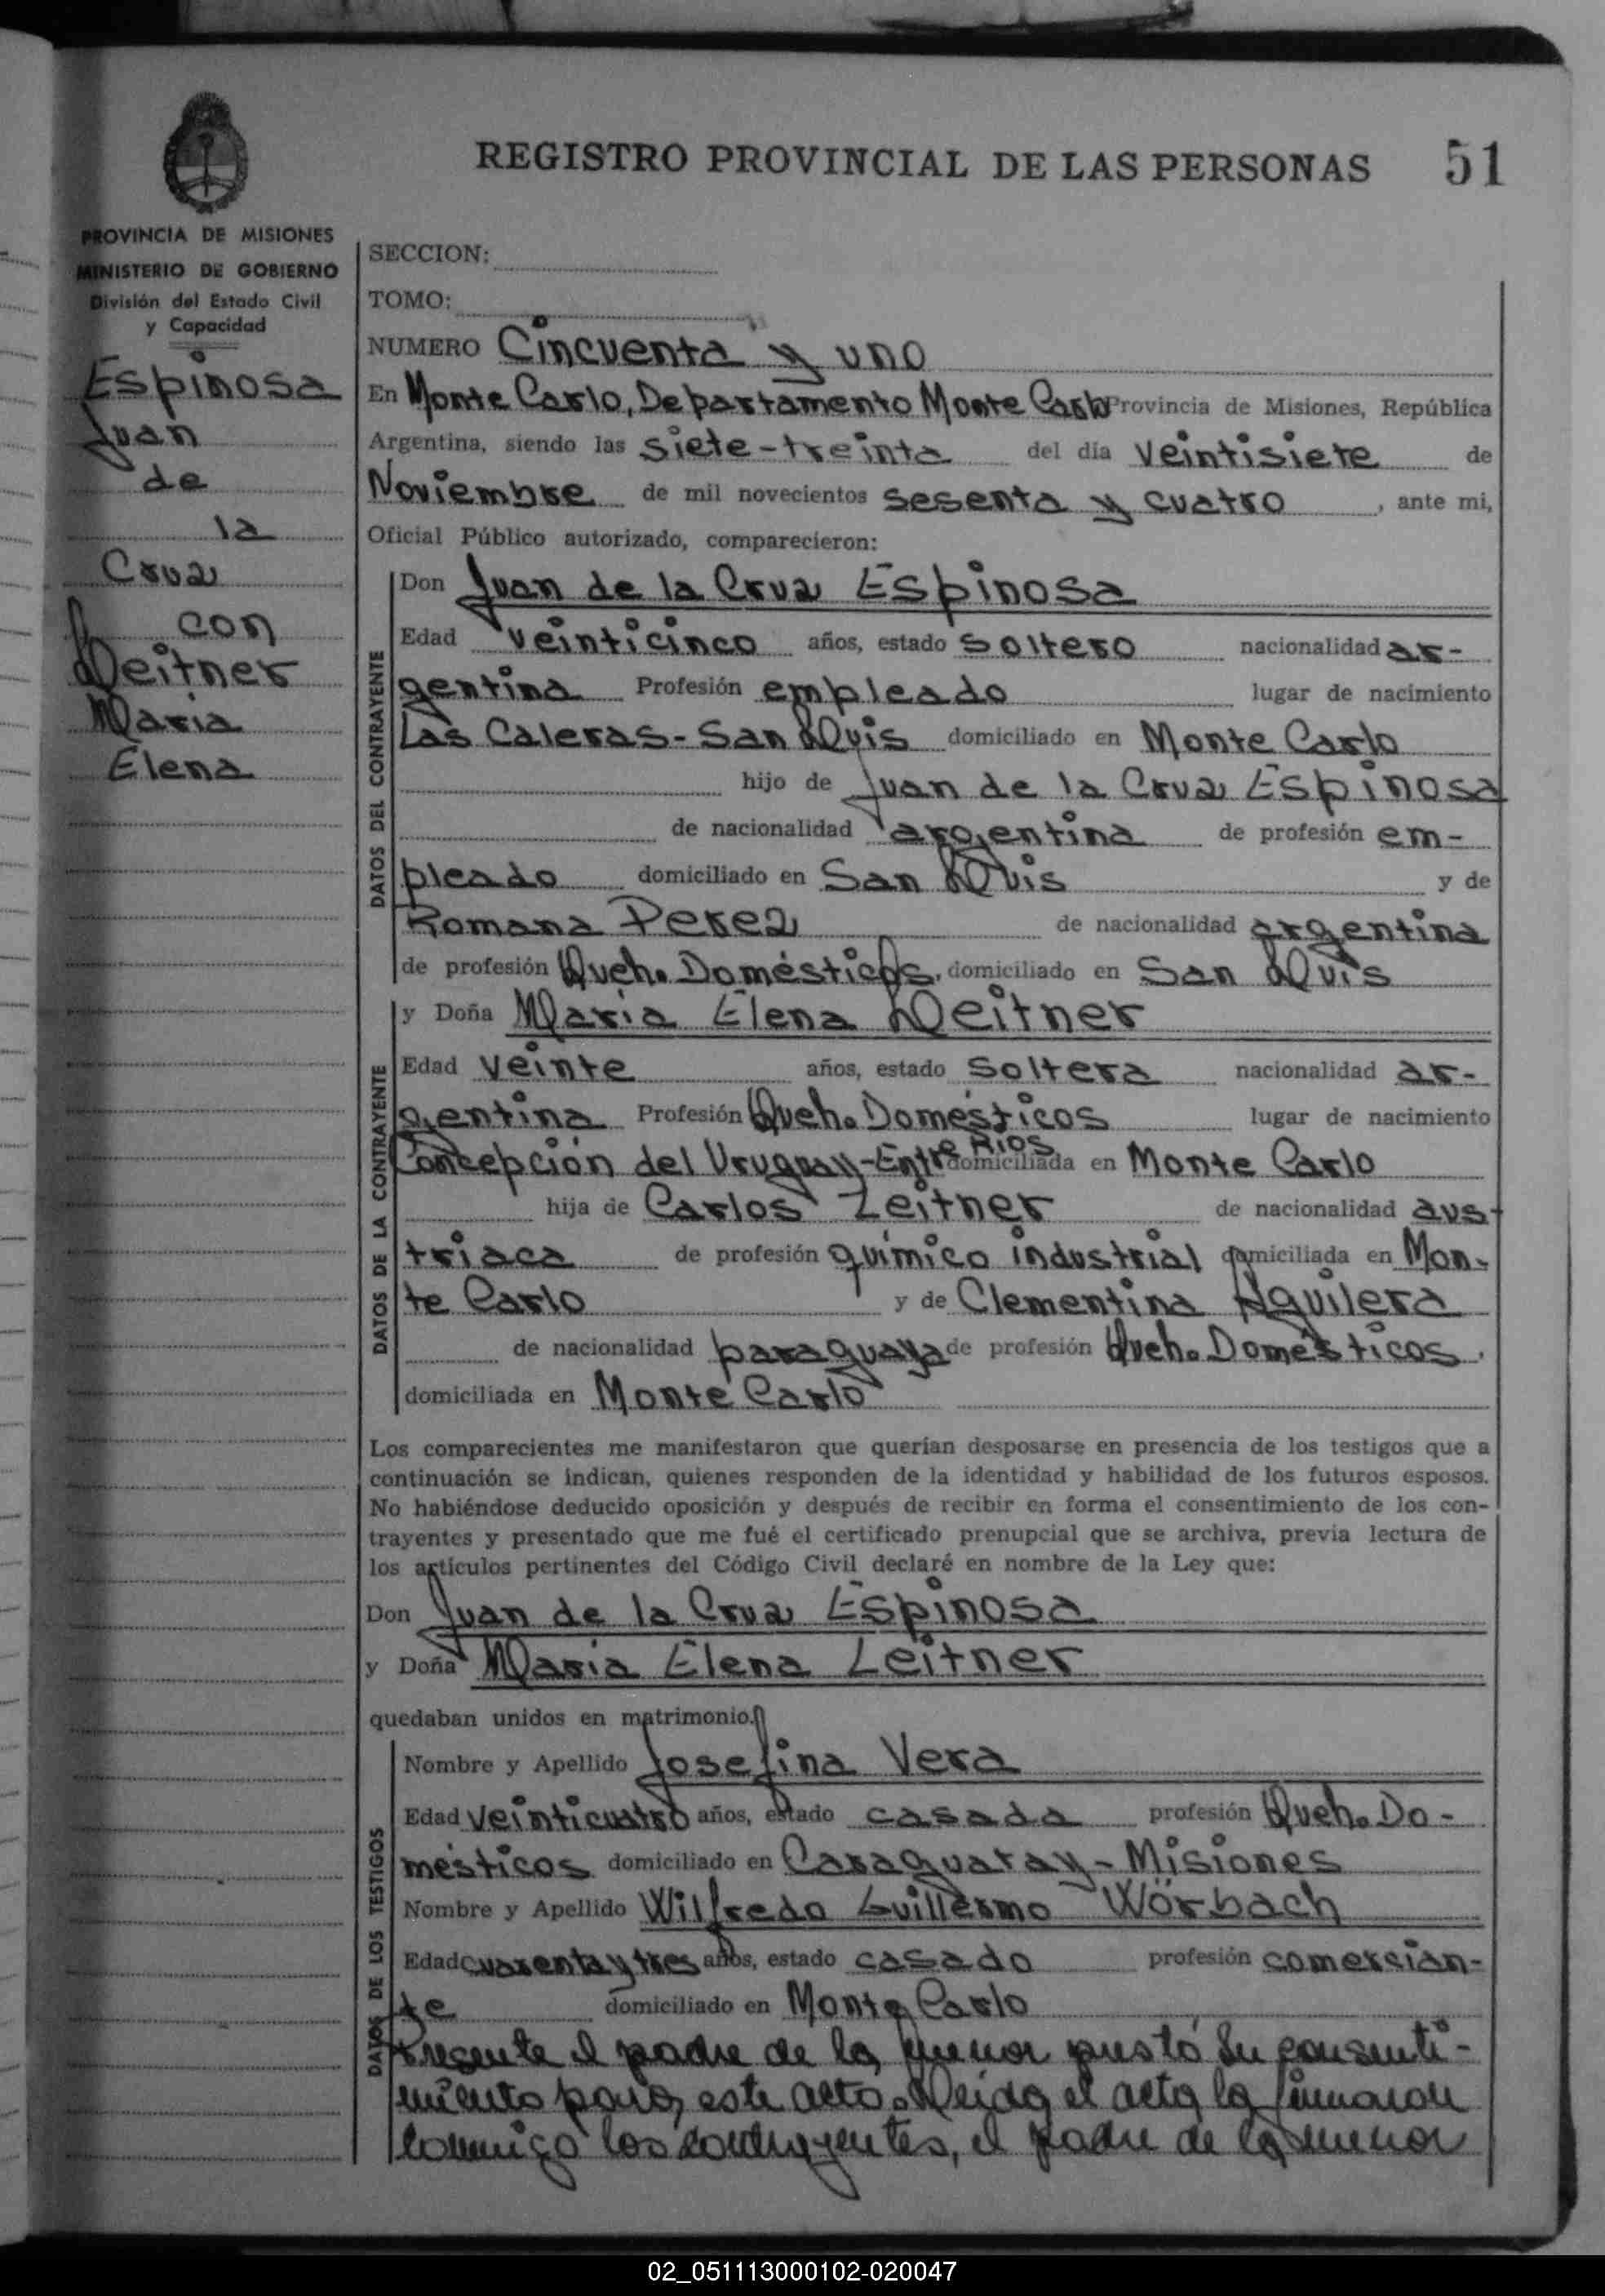 REGISTRO PROVINCIAL DE LAS PERSONAS 51
PROVINCIA DE MISIONES
MINISTERIO DE GOBIERNO
División del Estado Civil
y Capacidad
Espinosa
Juan
de
la
Cruz
con
Leitner
Maria
Elena
SECCION:
TOMO:
NUMERO Cincuenta y uno
En Monte Carlo, Departamento Monte Carlo Provincia de Misiones, República
Argentina, siendo las siete-treinta del día veintisiete de
Noviembre de mil novecientos sesenta y cuatro, ante mi,
Oficial Público autorizado, comparecieron:
DATOS DEL CONTRAYENTE
Don Juan de la Cruz Espinosa
Edad veinticinco años, estado soltero nacionalidad ar-
gentina Profesión empleado lugar de nacimiento
Las Caleras-San Luis domiciliado en Monte Carlo
hijo de Juan de la Cruz Espinosa
de nacionalidad argentina de profesión em-
pleado domiciliado en San Luis y de
Romana Perez de nacionalidad argentina
de profesión Queh. Domésticos, domiciliado en San Luis
DATOS DE LA CONTRAYENTE
y Doña Maria Elena Leitner
Edad veinte años, estado soltera nacionalidad ar-
gentina Profesión Queh. Domésticos lugar de nacimiento
Concepción del Uruguay-Entre Rios domiciliada en Monte Carlo
hija de Carlos Leitner de nacionalidad aus-
triaca de profesión químico industrial domiciliada en Mon-
te Carlo y de Clementina Aguilera
de nacionalidad paraguaya de profesión Queh. Domésticos.
domiciliada en Monte Carlo
Los comparecientes me manifestaron que querían desposarse en presencia de los testigos que a
continuación se indican, quienes responden de la identidad y habilidad de los futuros esposos.
No habiéndose deducido oposición y después de recibir en forma el consentimiento de los con-
trayentes y presentado que me fué el certificado prenupcial que se archiva, previa lectura de
los artículos pertinentes del Código Civil declaré en nombre de la Ley que:
Don Juan de la Cruz Espinosa
y Doña Maria Elena Leitner
quedaban unidos en matrimonio.
DATOS DE LOS TESTIGOS
Nombre y Apellido Josefina Vera
Edad veinticuatro años, estado casada profesión Queh. Do-
mésticos domiciliado en Caraguatay-Misiones
Nombre y Apellido Wilfredo Guillermo Wörbach
Edad cuarenta y tres años, estado casado profesión comercian-
te domiciliado en Monte Carlo
Presente el padre de la menor prestó su consenti-
miento para este acto. Leida el acta la firmaron
conmigo los contrayentes, el padre de la menor
02_051113000102-020047